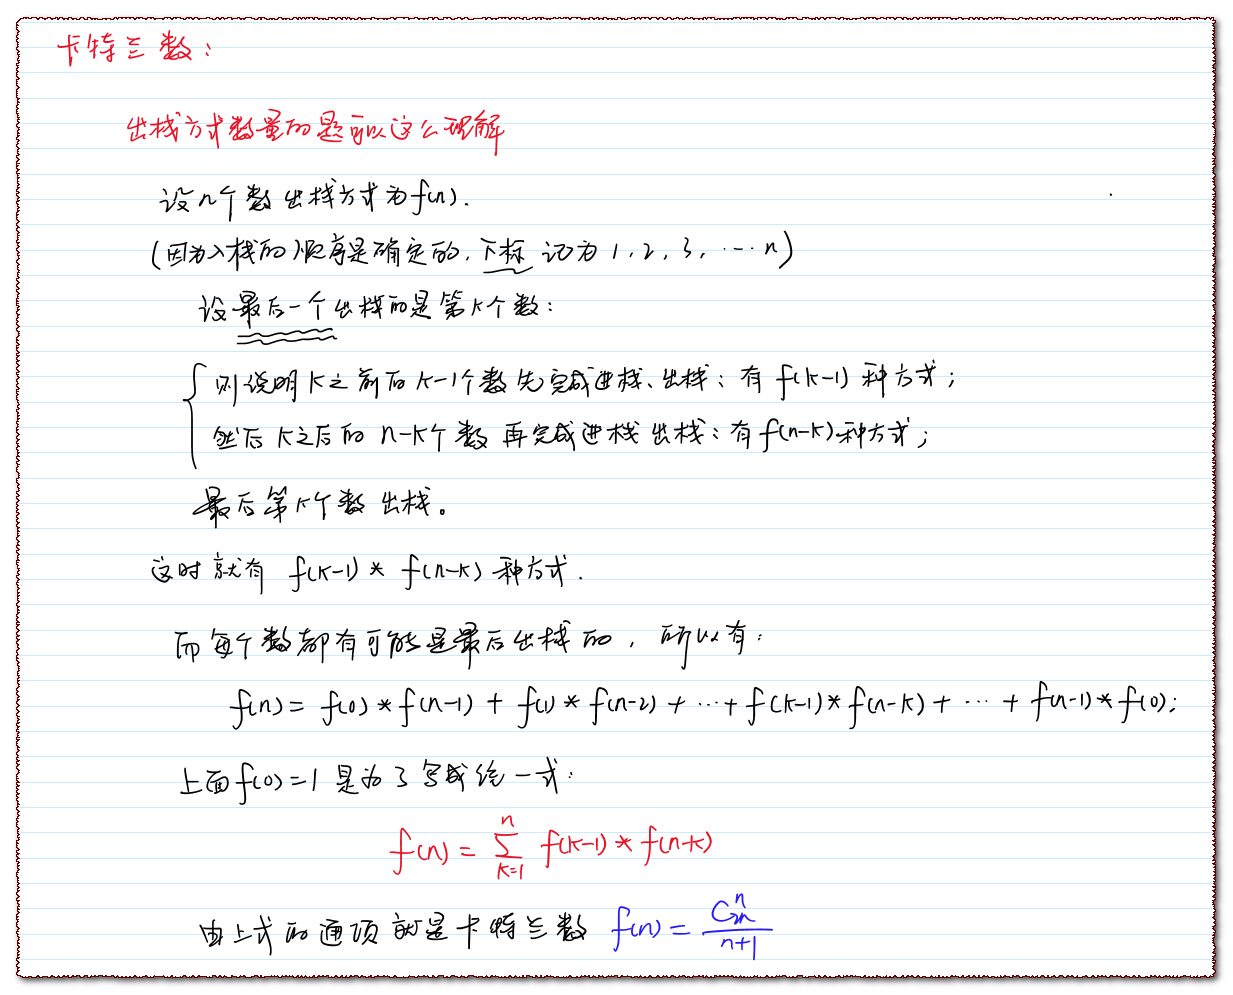 卡特兰数：
出栈方式数量的题可以这么理解
设n个数出栈方式为f(n).
(因为入栈的顺序是确定的, 下标 记为 1, 2, 3, ... n)
设最后一个出栈的是第k个数：
则说明k之前的k-1个数先完成进栈、出栈；有 f(k-1) 种方式；
然后k之后的 n-k个数 再完成进栈出栈；有f(n-k)种方式；
最后第k个数出栈。
这时就有 f(k-1) * f(n-k) 种方式.
而每个数都有可能是最后出栈的, 所以有：
f(n) = f(0) * f(n-1) + f(1) * f(n-2) + ... + f(k-1) * f(n-k) + ... + f(n-1) * f(0);
上面f(0)=1是为了写成统一式：
f(n) = ∑_{k=1}^{n} f(k-1) * f(n-k)
由上式的通项就是卡特兰数 f(n) = C_{2n}^{n} / (n+1)